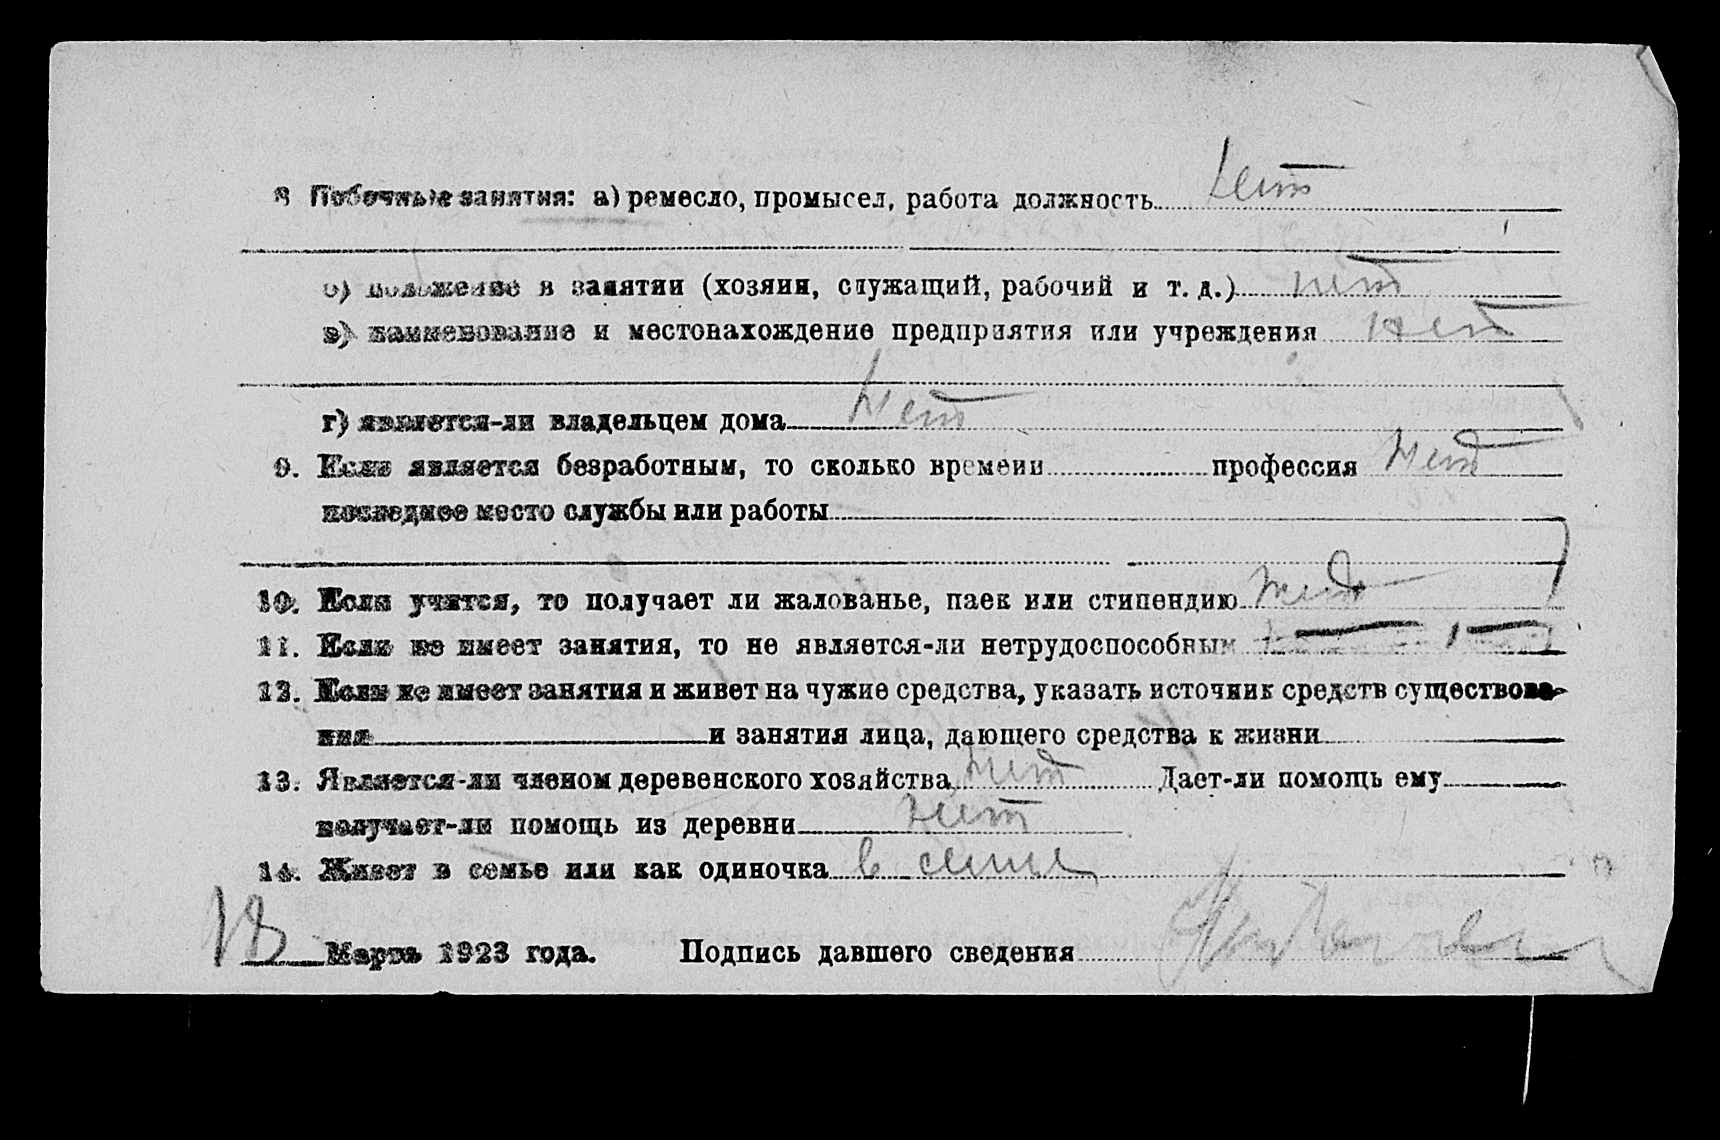 8 Побочные занятия: а) ремесло, промысел, работа должность нет
б) положение в занятии (хозяин, служащий, рабочий и т. д.) нет
в) наименование и местонахождение предприятия или учреждения нет
г) является-ли владельцем дома нет
9. Если является безработным, то сколько времени профессия нет
последнее место службы или работы
10. Если учится, то получает ли жалованье, паек или стипендию нет
11. Если не имеет занятия, то не является-ли нетрудоспособным
12. Если не имеет занятия и живет на чужие средства, указать источник средств существова-
ния и занятия лица, дающего средства к жизни
13. Является-ли членом деревенского хозяйства нет Дает-ли помощь ему
получает-ли помощь из деревни нет
14. Живет в семье или как одиночка в семье
18 Марта 1923 года. Подпись давшего сведения